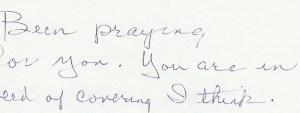 Been praying
for you. You are in
need of covering I think.